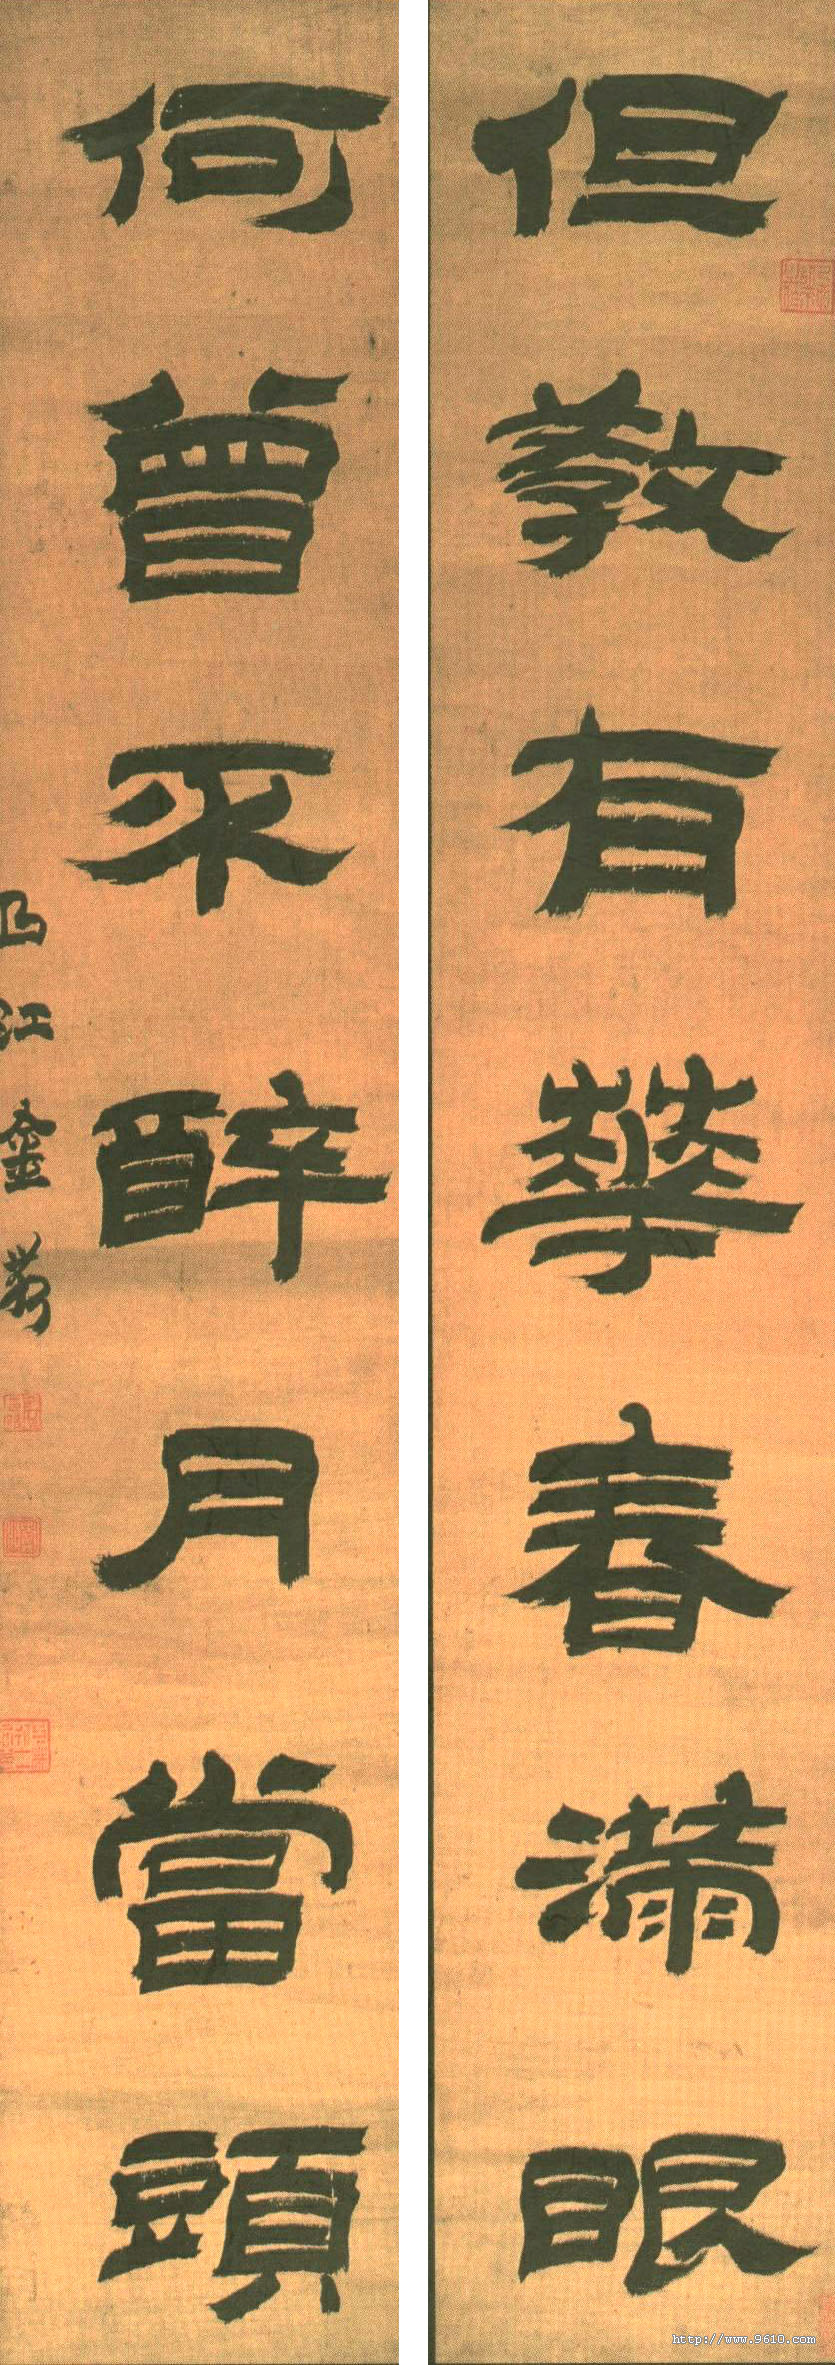 但教有華春滿眼
何曾不醉月當頭
江金農
http://www.9610.com